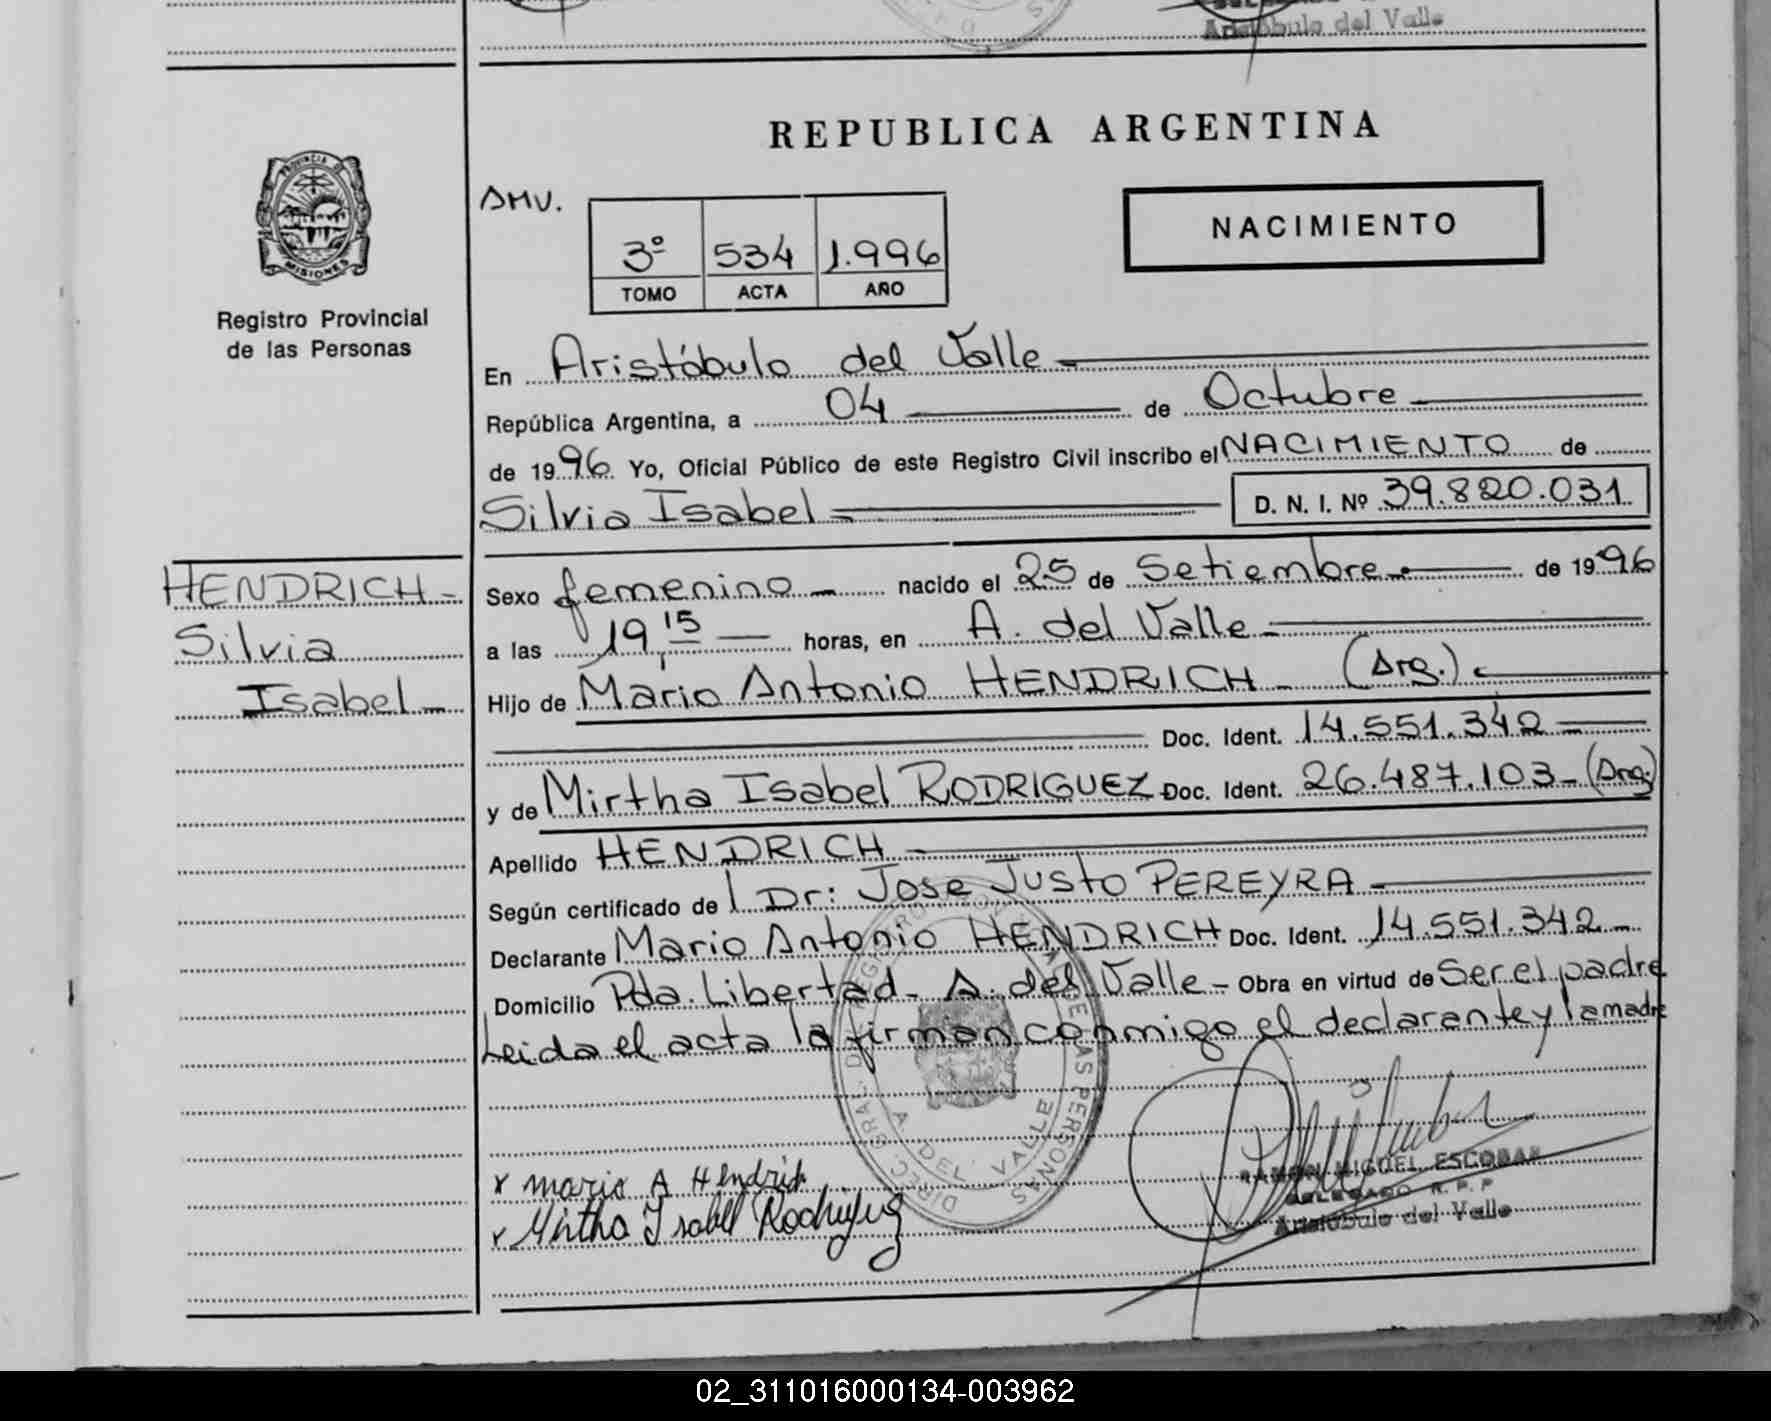 Aristóbulo del Valle
REPUBLICA ARGENTINA
PROVINCIA DE
MISIONES
Registro Provincial
de las Personas
AMV.
3º 534 1.996
TOMO ACTA AÑO
NACIMIENTO
En Aristóbulo del Valle
República Argentina, a 04 de Octubre
de 1996 Yo, Oficial Público de este Registro Civil inscribo el NACIMIENTO de
Silvia Isabel D. N. I. Nº 39.820.031
HENDRICH -
Silvia
Isabel
Sexo femenino nacido el 25 de Setiembre de 1996
a las 19,15 horas, en A. del Valle
Hijo de Mario Antonio HENDRICH (Arg.)
Doc. Ident. 14.551.342
y de Mirtha Isabel RODRIGUEZ Doc. Ident. 26.487.103 - (Arg.)
Apellido HENDRICH
Según certificado de l Dr: Jose Justo PEREYRA
Declarante Mario Antonio HENDRICH Doc. Ident. 14.551.342
Domicilio Pda. Libertad - A. del Valle - Obra en virtud de Ser el padre
Leida el acta la firman conmigo el declarante y la madre
DE LAS PERSONAS
A. DEL VALLE
x mario A Hendrich
x Mirtha Isabel Rodriguez
RAMON MIGUEL ESCOBAR
DELEGADO R. P. P
Aristóbulo del Valle
02_311016000134-003962